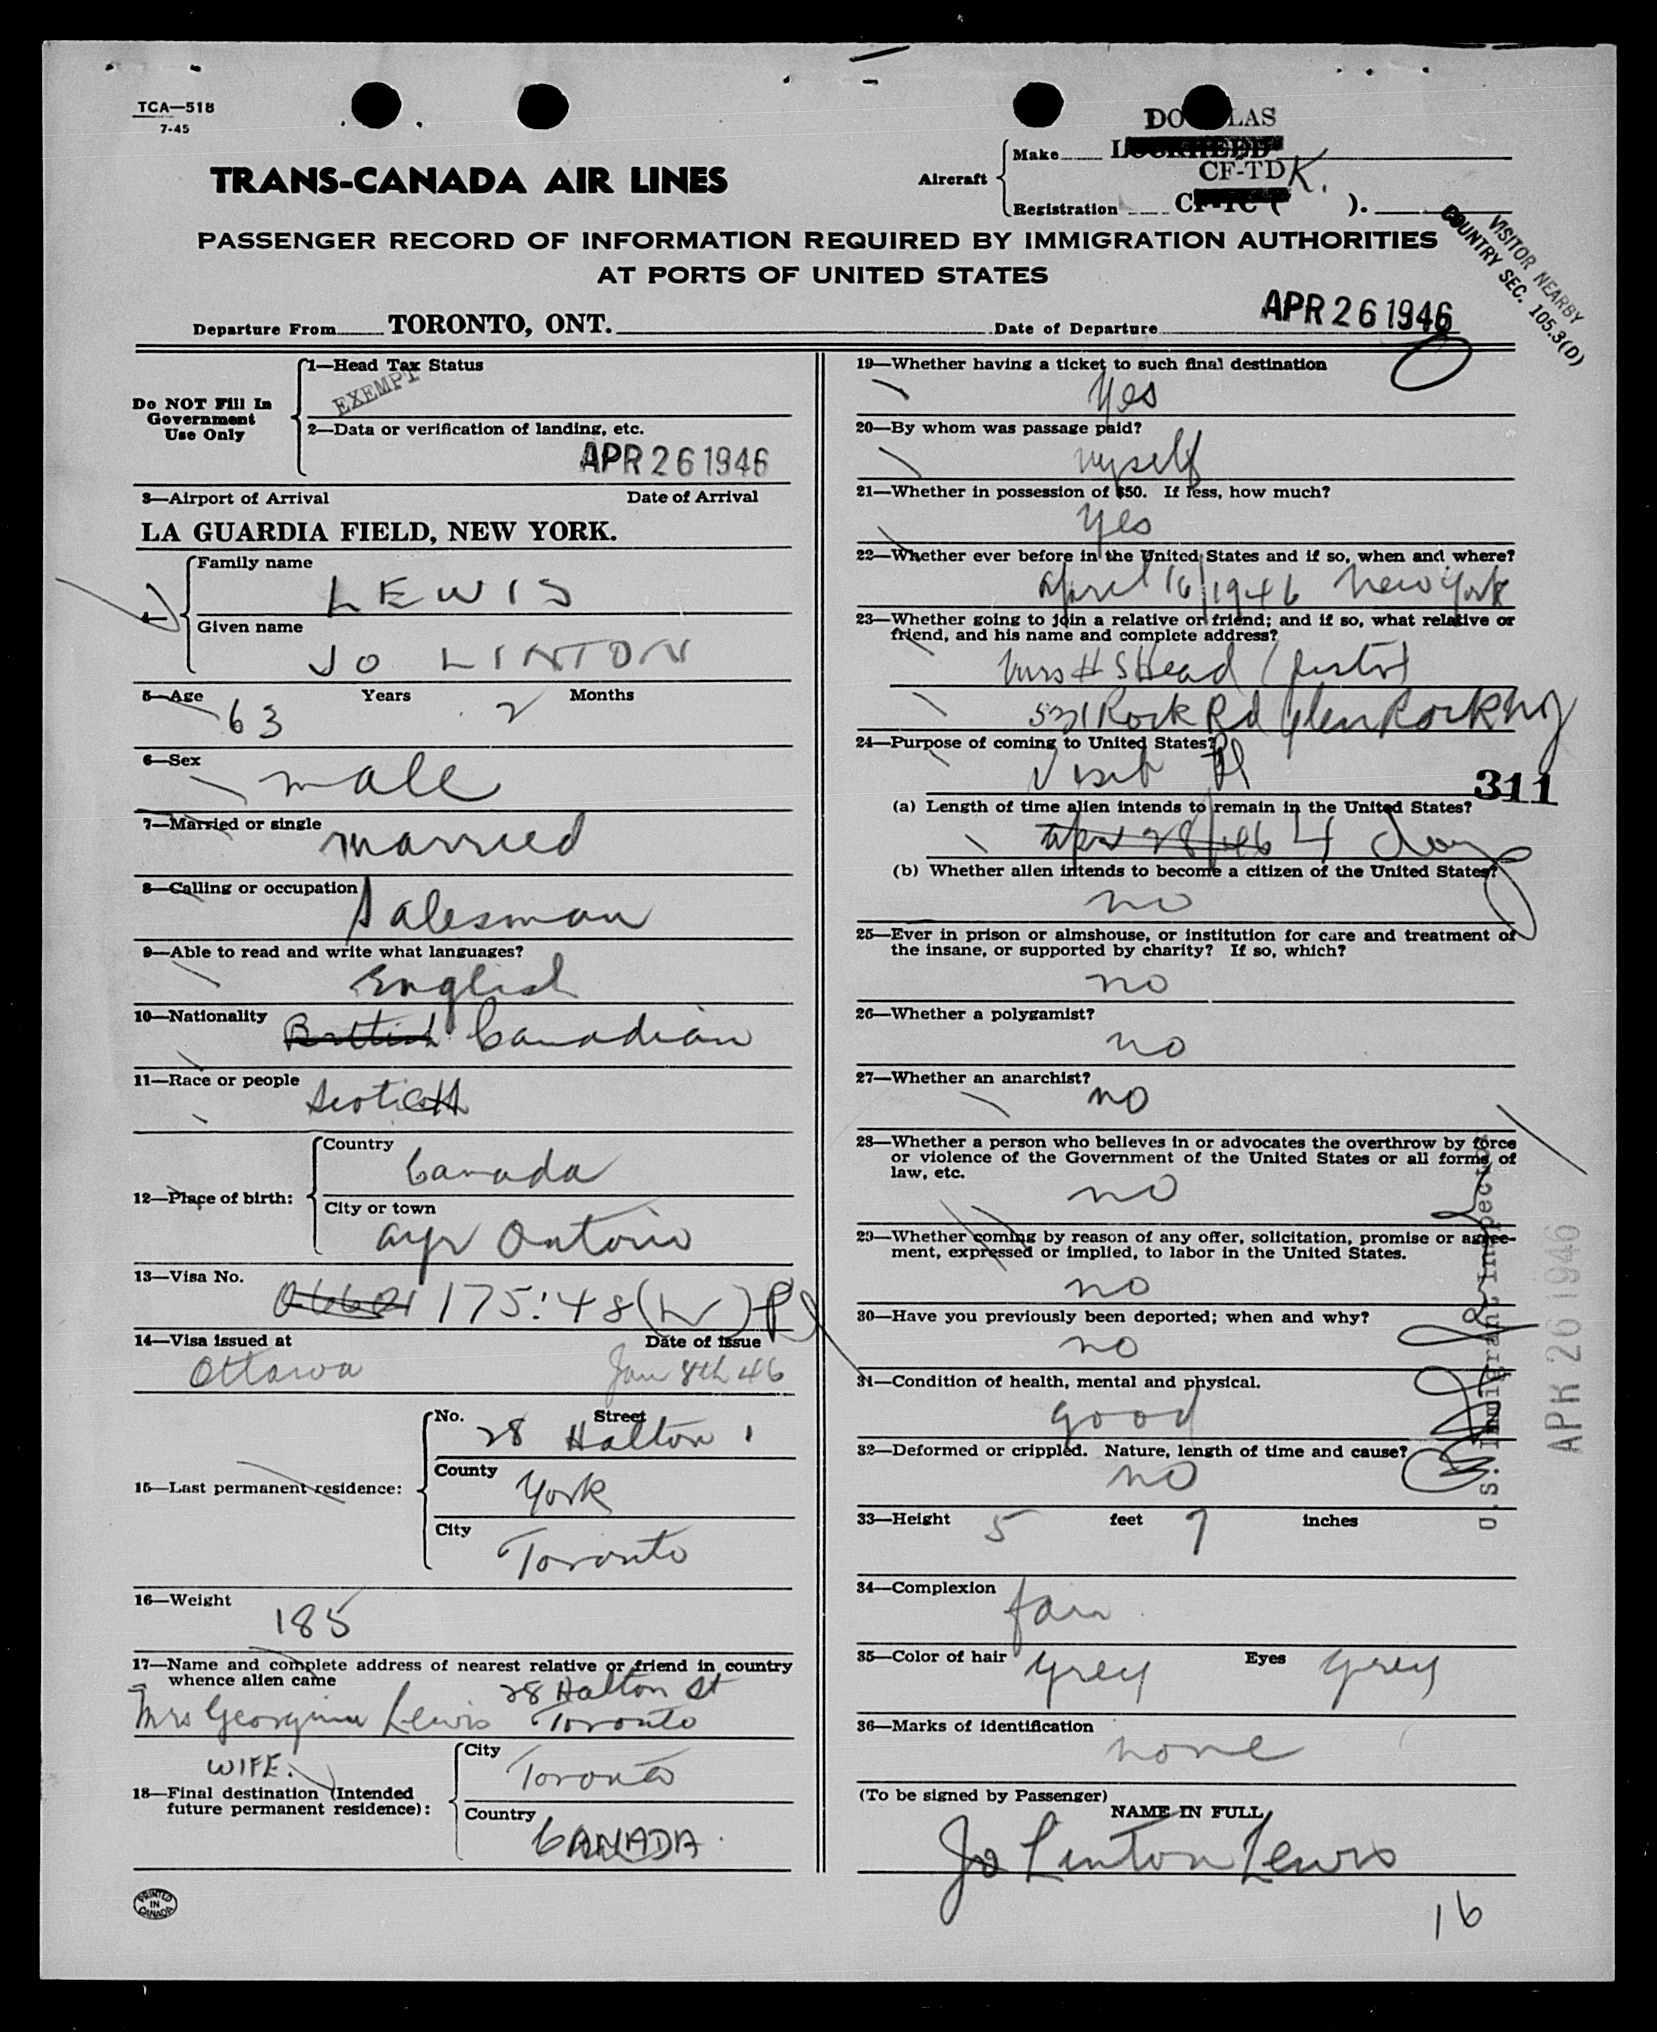 TCA—518
7-45
TRANS-CANADA AIR LINES
DO LAS
Aircraft
Make LOCKHEED
CF-TDK.
Registration CF-TC ( ).
PASSENGER RECORD OF INFORMATION REQUIRED BY IMMIGRATION AUTHORITIES
AT PORTS OF UNITED STATES
VISITOR NEARBY
COUNTRY SEC. 105.3(D)
Departure From TORONTO, ONT. Date of Departure APR 26 1946
Do NOT Fill In
Government
Use Only
1—Head Tax Status
EXEMPT
2—Data or verification of landing, etc.
APR 26 1946
3—Airport of Arrival Date of Arrival
LA GUARDIA FIELD, NEW YORK.
4—
Family name
LEWIS
Given name
JO LINTON
5—Age Years Months
63 2
6—Sex
male
7—Married or single
married
8—Calling or occupation
Salesman
9—Able to read and write what languages?
English
10—Nationality
British Canadian
11—Race or people
Scotich
12—Place of birth:
Country
Canada
City or town
Ayr Ontario
13—Visa No.
175:48(W)
14—Visa issued at Date of issue
Ottawa Jan 8th 46
15—Last permanent residence:
No. Street
28 Halton
County
York
City
Toronto
16—Weight
185
17—Name and complete address of nearest relative or friend in country
whence alien came
28 Halton St
Mrs Georgina Lewis Toronto
WIFE.
18—Final destination (Intended
future permanent residence):
City
Toronto
Country
CANADA.
PRINTED
IN
CANADA
19—Whether having a ticket to such final destination
Yes
20—By whom was passage paid?
myself
21—Whether in possession of $50. If less, how much?
Yes
22—Whether ever before in the United States and if so, when and where?
April 16/1946 New York
23—Whether going to join a relative or friend; and if so, what relative or
friend, and his name and complete address?
Mrs H S Head (sister)
531 Rock Rd Glen Rock NJ
24—Purpose of coming to United States?
Visit
311
(a) Length of time alien intends to remain in the United States?
Apr 28/46 4 days
(b) Whether alien intends to become a citizen of the United States?
no
25—Ever in prison or almshouse, or institution for care and treatment of
the insane, or supported by charity? If so, which?
no
26—Whether a polygamist?
no
27—Whether an anarchist?
no
28—Whether a person who believes in or advocates the overthrow by force
or violence of the Government of the United States or all forms of
law, etc.
no
29—Whether coming by reason of any offer, solicitation, promise or agree-
ment, expressed or implied, to labor in the United States.
no
30—Have you previously been deported; when and why?
no
31—Condition of health, mental and physical.
good
32—Deformed or crippled. Nature, length of time and cause?
no
U.S. Immigrant Inspector
APR 26 1946
33—Height 5 feet 7 inches
34—Complexion
fair
35—Color of hair grey Eyes grey
36—Marks of identification
none
(To be signed by Passenger)
NAME IN FULL
Jo Linton Lewis
16